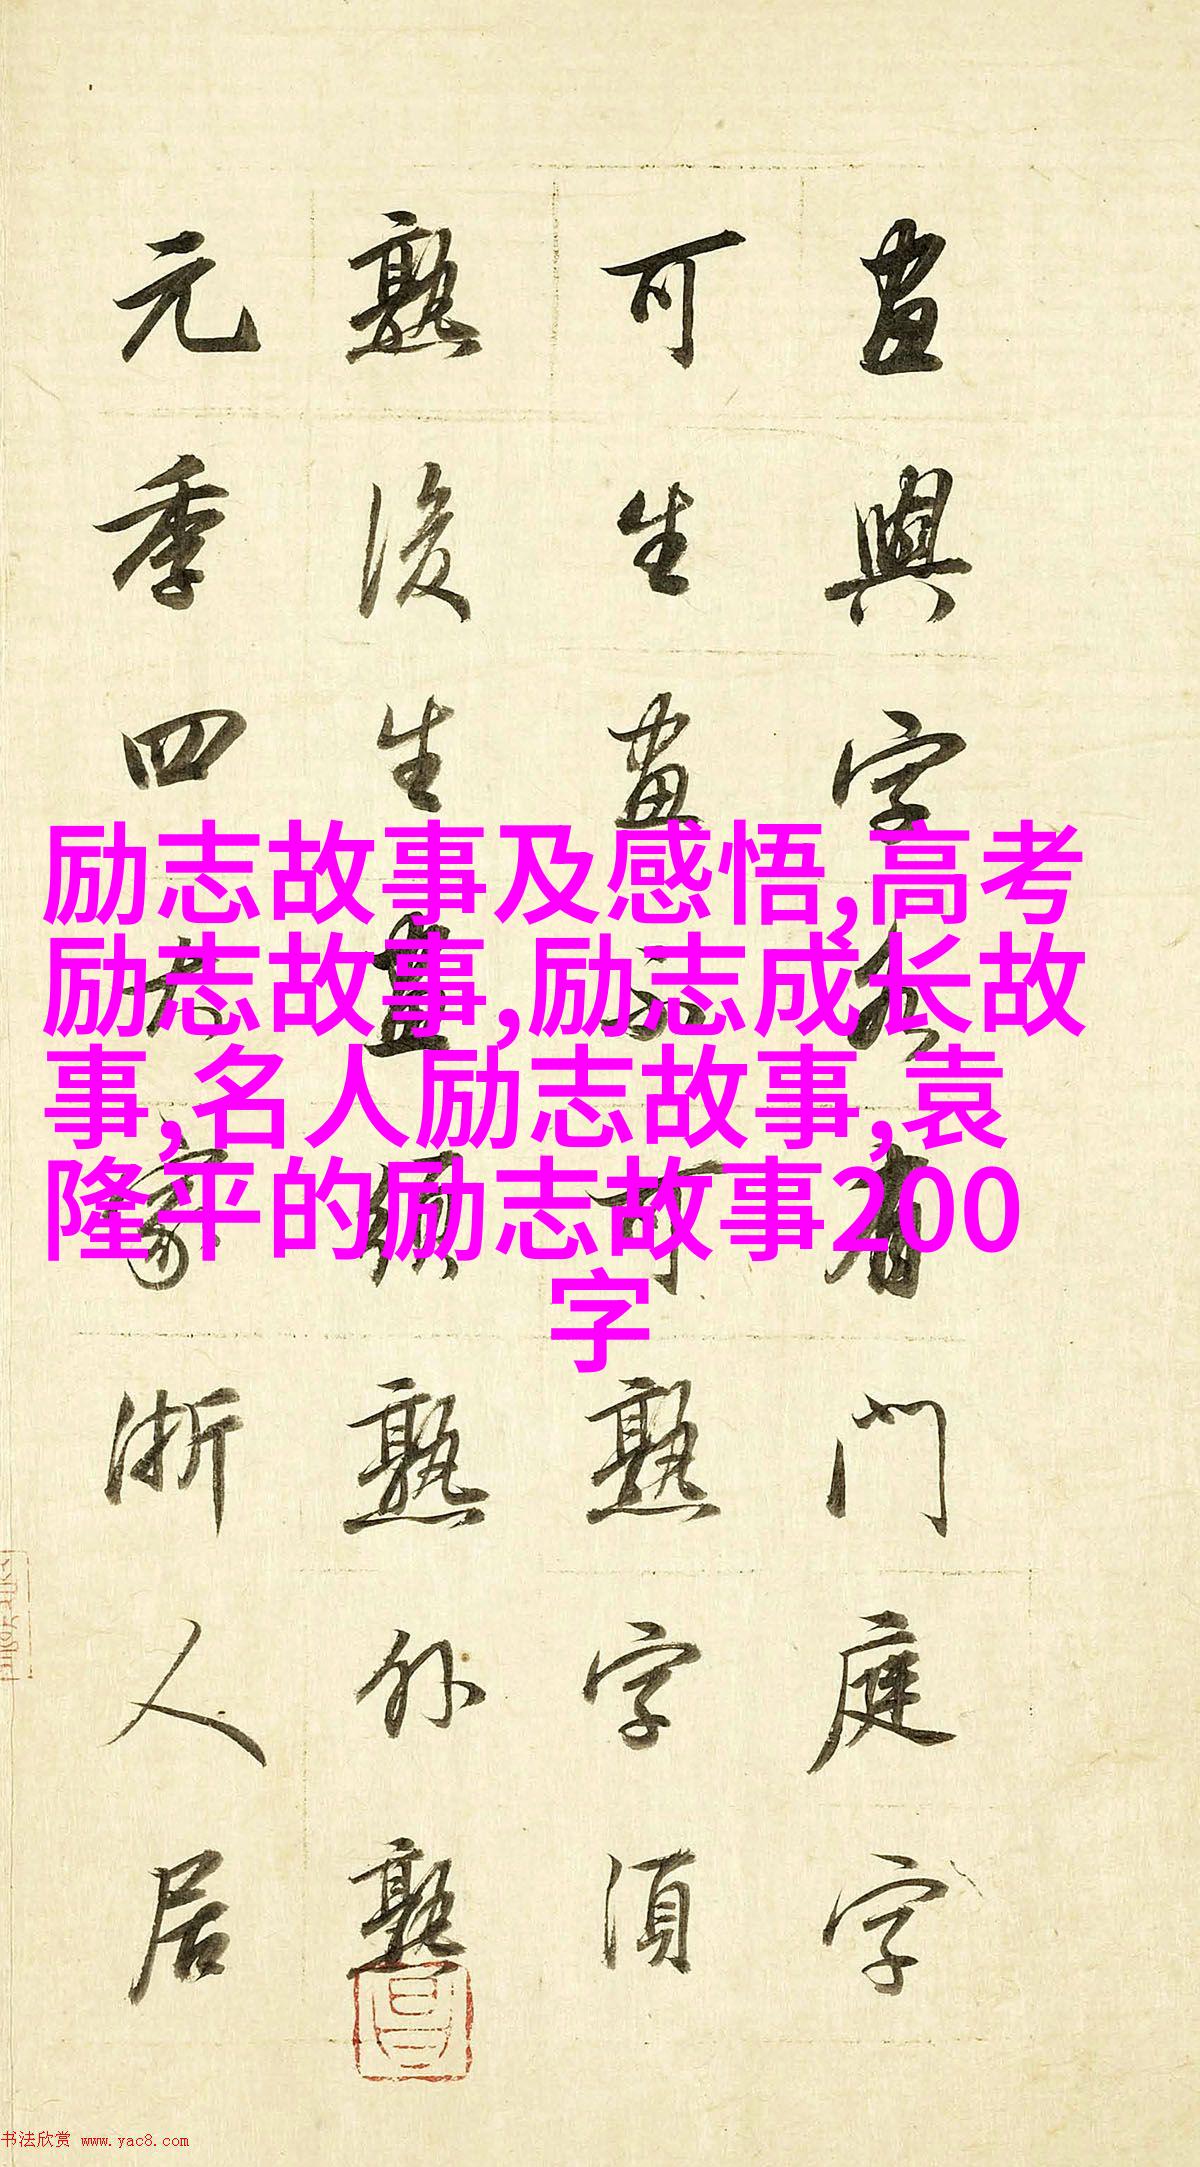 畫與字各有門庭字
可生畫不可熟字須
熟後生畫須熟外熟
元季四大家浙人居
励志故事及感悟,高考
励志故事,励志成长故
事,名人励志故事,袁
隆平的励志故事200
字
书法欣赏 www.yac8.com